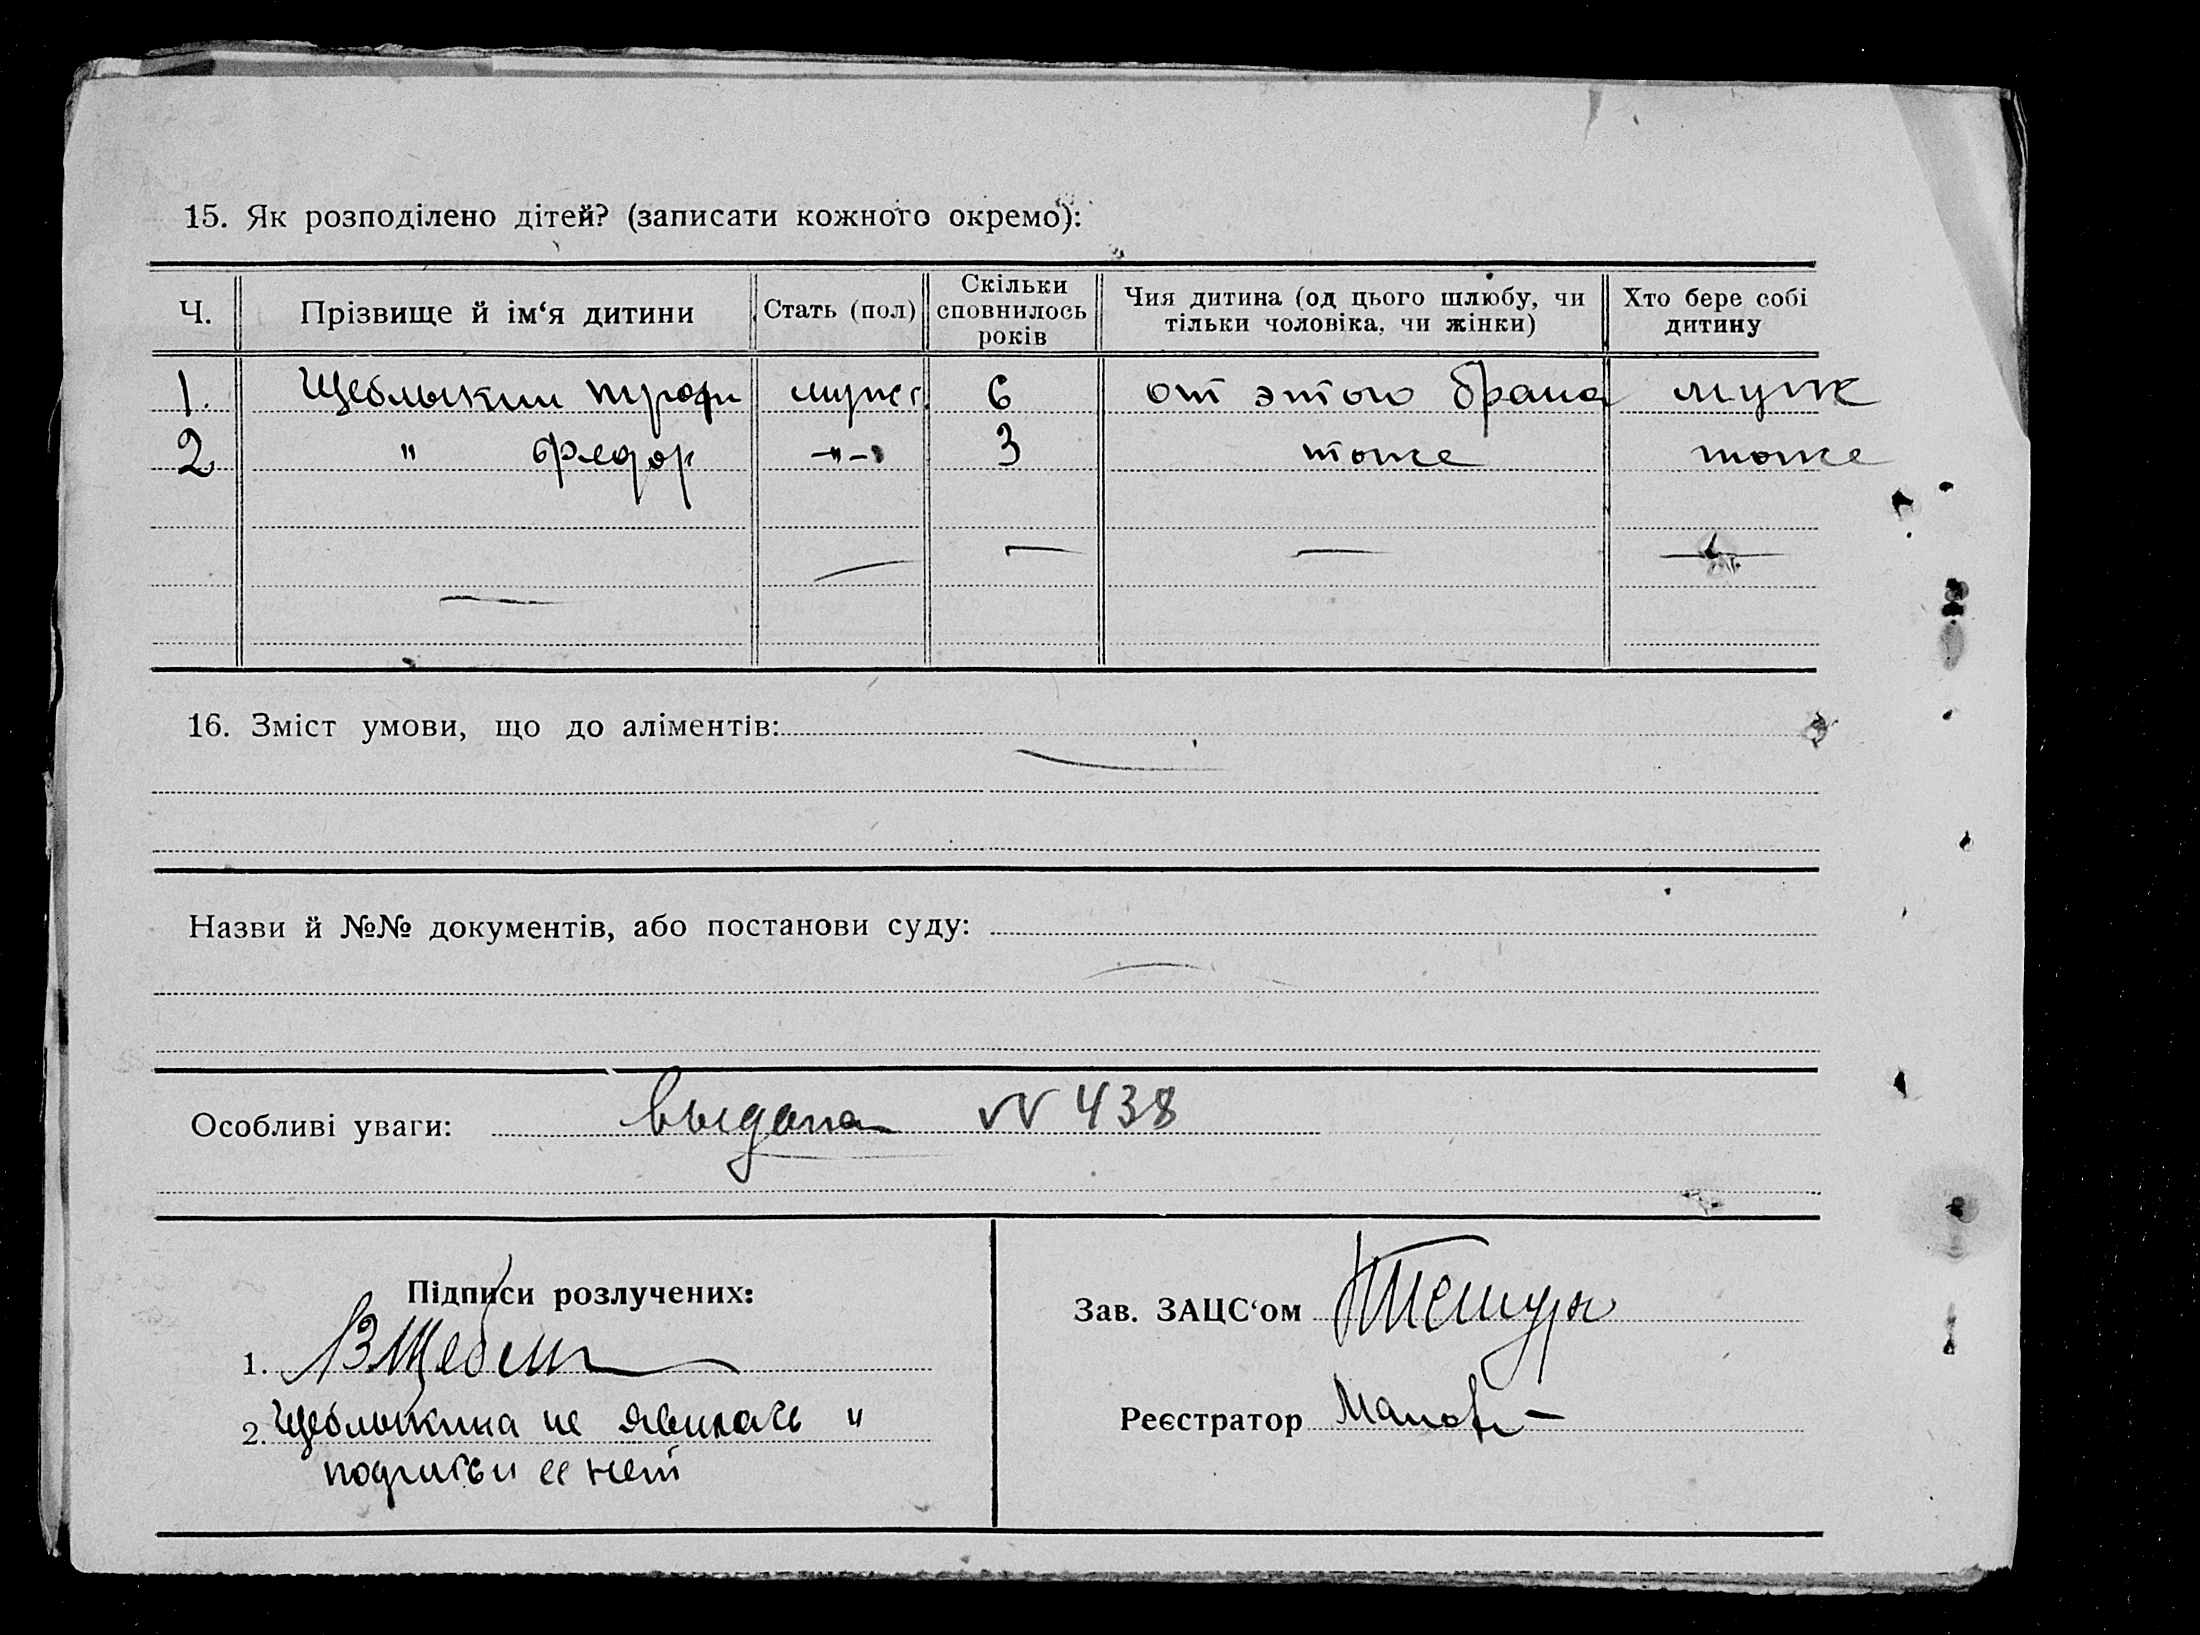 15. Як розподілено дітей? (записати кожного окремо):
Ч. Прізвище й ім‘я дитини Стать (пол) Скільки сповнилось років Чия дитина (од цього шлюбу, чи тільки чоловіка, чи жінки) Хто бере собі дитину
1. Щеблыкин 6 от этого брака муж
2 " Федор -"- 3 тоже тоже
16. Зміст умови, що до аліментів:
Назви й №№ документів, або постанови суду:
Особливі уваги: выдана N 438
Підписи розлучених:
1.
2. Щеблыкина не явилась и
подписи ее нет
Зав. ЗАЦС‘ом
Реєстратор